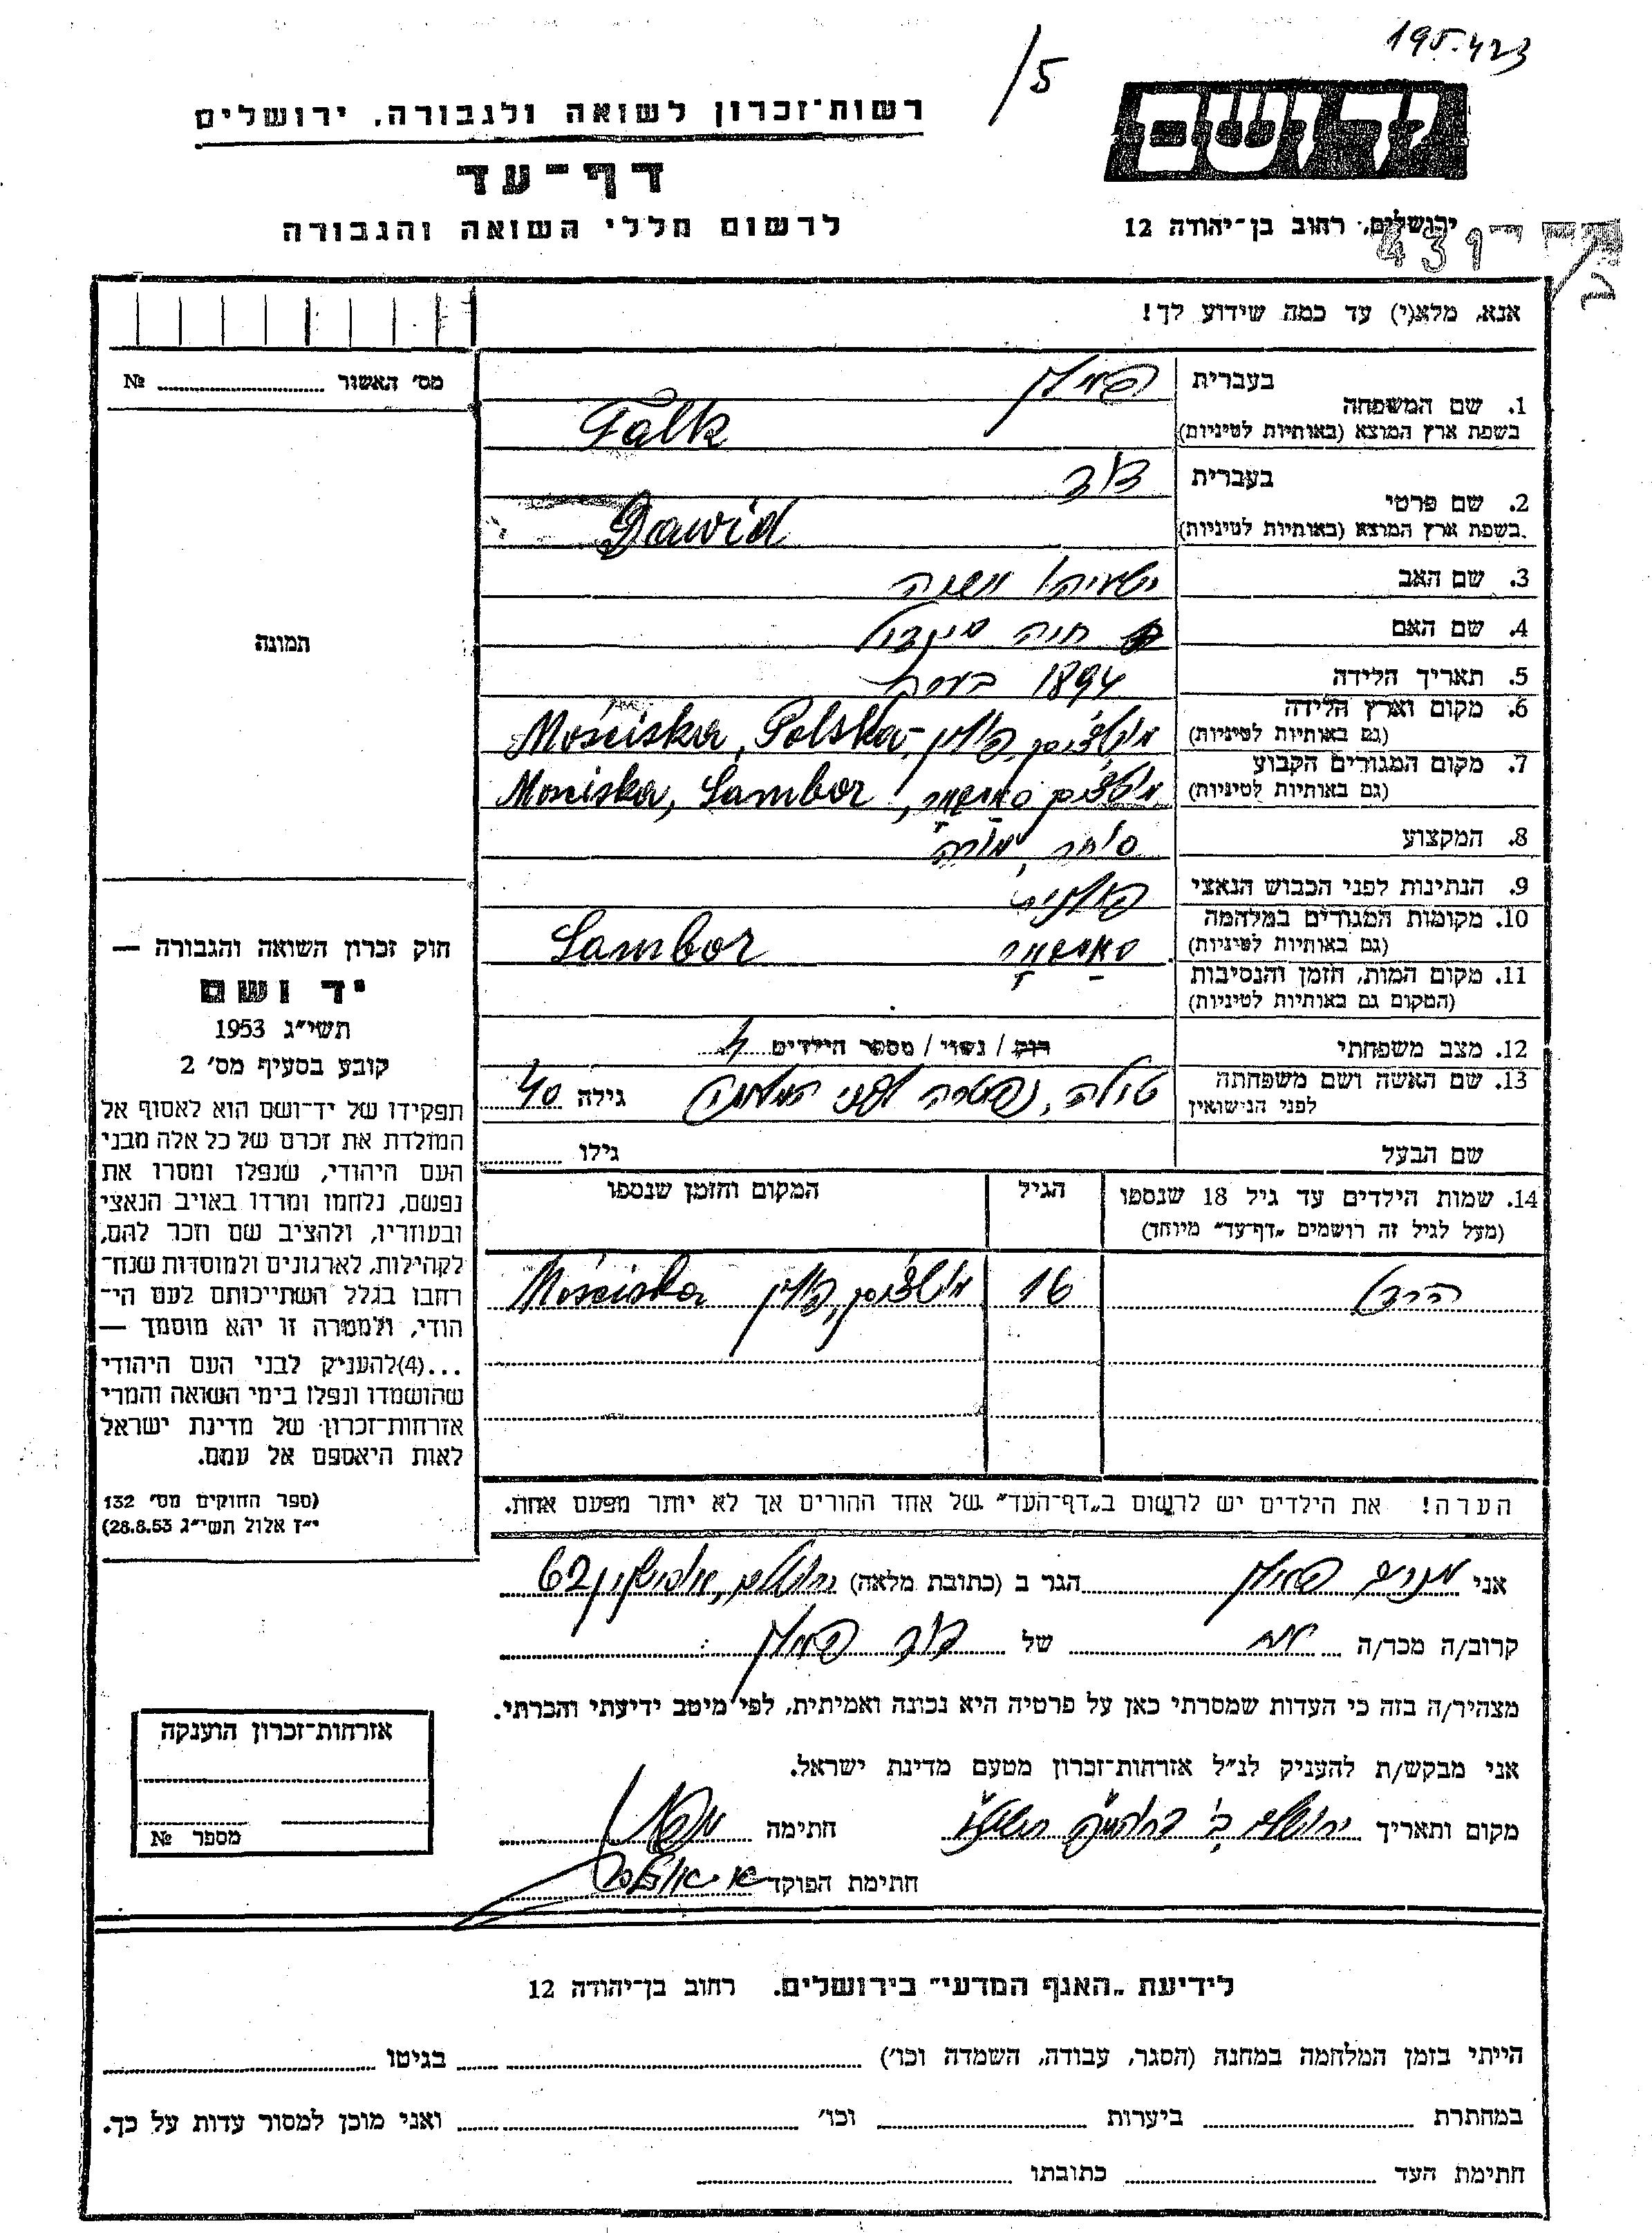 195.423
/5
רשות־זכרון לשואה ולגבורה, ירושלים
דף־עד
לרשום חללי השואה והגבורה
יד ושם
ירושלים, רחוב בן־יהודה 12
431
אנא, מלא(י) עד כמה שידוע לך!
מס' האשור № ............
תמונה
1. שם המשפחה
בעברית
בשפת ארץ המוצא (באותיות לטיניות) Falk
2. שם פרטי
בעברית דוד
בשפת ארץ המוצא (באותיות לטיניות) Dawid
3. שם האב
4. שם האם חיה
5. תאריך הלידה 1894 בערך
6. מקום וארץ הלידה
(גם באותיות לטיניות) פולין, Mościska, Polska
7. מקום המגורים הקבוע
(גם באותיות לטיניות) Mosciska, Sambor
8. המקצוע סוחר, מורה
9. הנתינות לפני הכבוש הנאצי פולנית
10. מקומות המגורים במלחמה
(גם באותיות לטיניות) סאמבור Sambor
11. מקום המות, הזמן והנסיבות
(המקום גם באותיות לטיניות)
12. מצב משפחתי רוק / נשוי / מספר הילדים 4
13. שם האשה ושם משפחתה
לפני הנישואין נפטרה לפני המלחמה גילה 40
שם הבעל גילו ............
14. שמות הילדים עד גיל 18 שנספו
(מעל לגיל זה רושמים „דף־עד" מיוחד)
הגיל
המקום והזמן שנספו
16 פולין Mościska
הערה! את הילדים יש לרשום ב„דף־העד" של אחד ההורים אך לא יותר מפעם אחת.
חוק זכרון השואה והגבורה —
יד ושם
תשי"ג 1953
קובע בסעיף מס' 2
תפקידו של יד־ושם הוא לאסוף אל
המולדת את זכרם של כל אלה מבני
העם היהודי, שנפלו ומסרו את
נפשם, נלחמו ומרדו באויב הנאצי
ובעוזריו, ולהציב שם וזכר להם,
לקהילות, לארגונים ולמוסדות שנח־
רחבו בגלל השתייכותם לעם הי־
הודי, ולמטרה זו יהא מוסמך —
...(4)להעניק לבני העם היהודי
שהושמדו ונפלו בימי השואה והמרי
אזרחות־זכרון של מדינת ישראל
לאות היאספם אל עמם.
(ספר החוקים מס' 132
י"ז אלול תשי"ג 28.8.53)
אני הגר ב (כתובת מלאה) ירושלים, 62
קרוב/ה מכר/ה אח של דוד
מצהיר/ה בזה כי העדות שמסרתי כאן על פרטיה היא נכונה ואמיתית, לפי מיטב ידיעתי והכרתי.
אני מבקש/ת להעניק לנ"ל אזרחות־זכרון מטעם מדינת ישראל.
מקום ותאריך ירושלים חתימה
חתימת הפוקד
אזרחות־זכרון הוענקה
מספר №
לידיעת „האגף המדעי" בירושלים. רחוב בן־יהודה 12
הייתי בזמן המלחמה במחנה (הסגר, עבודה, השמדה וכו') ............ בגיטו ............
במחתרת ............ ביערות ............ וכו' ............ ואני מוכן למסור עדות על כך.
חתימת העד ............ כתובתו ............